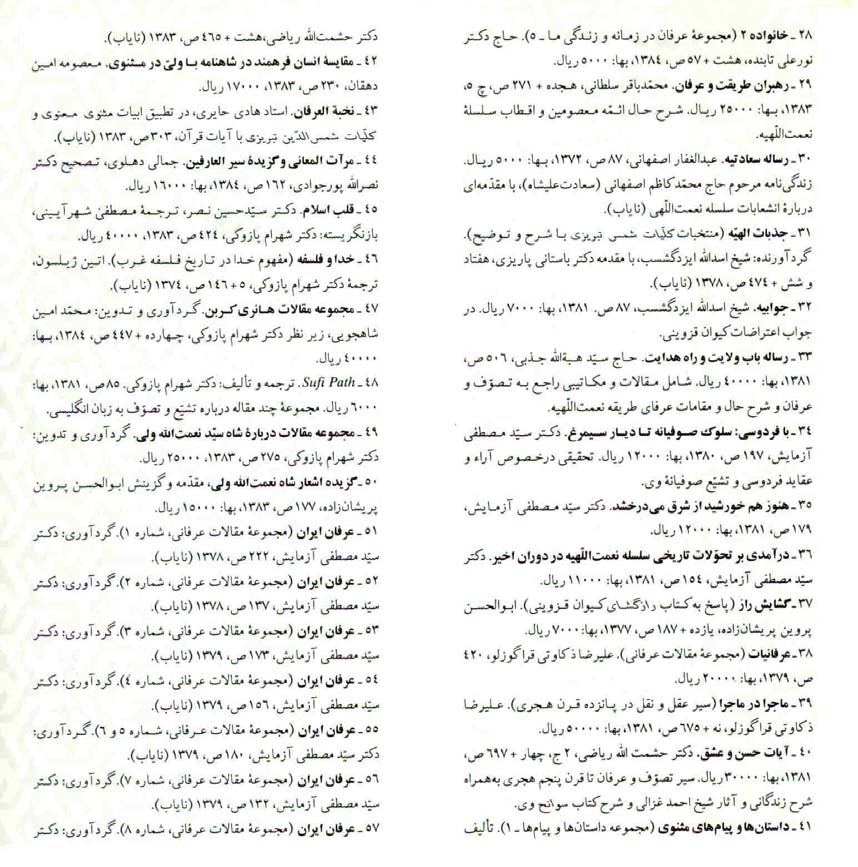 ۲۸ ـ خانواده ۲ (مجموعهٔ عرفان در زمانه و زندگی ما ـ ۵). حاج دکتر
نورعلی تابنده، هشت + ۵۷ ص، ۱۳۸۴، بها: ۵۰۰۰ ریال.
۲۹ ـ رهبران طریقت و عرفان. محمّدباقر سلطانی، هجده + ۲۷۱ ص، چ ۵،
۱۳۸۳، بـها: ۲۵۰۰۰ ریـال. شرح حال ائـمّه معصومین و اقطاب سلسلهٔ
نعمت‌اللّهیه.
۳۰ ـ رساله سعادتیه. عبدالغفار اصفهانی، ۸۷ ص، ۱۳۷۲، بـها: ۵۰۰۰ ریـال.
زندگی‌نامه مرحوم حاج محمّدکاظم اصفهانی (سعادت‌علیشاه)، با مقدّمه‌ای
دربارهٔ انشعابات سلسله نعمت‌اللّهی (نایاب).
۳۱ ـ جذبات الهیّه (منتخبات کلیّات شمس تبریزی با شرح و توضیح).
گردآورنده: شیخ اسدالله ایزدگشسب، با مقدمه دکتر باستانی پاریزی، هفتاد
و شش + ۴۷۴ ص، ۱۳۷۸ (نایاب).
۳۲ ـ جوابیه. شیخ اسدالله ایزدگشسب، ۸۷ ص. ۱۳۸۱، بها: ۷۰۰۰ ریال. در
جواب اعتراضات کیوان قزوینی.
۳۳ ـ رساله باب ولایت و راه هدایت. حاج سیّد هبةالله جذبی، ۵۰۶ ص،
۱۳۸۱، بها: ۴۰۰۰۰ ریال. شامل مقالات و مکاتیبی راجع بـه تـصوّف و
عرفان و شرح حال و مقامات عرفای طریقه نعمت‌اللّهیه.
۳۴ ـ با فردوسی: سلوک صـوفیانه تـا دیـار سـیمرغ. دکتر سیّد مصطفی
آزمایش، ۱۹۷ ص، ۱۳۸۰، بها: ۱۲۰۰۰ ریال. تحقیقی درخصوص آراء و
عقاید فردوسی و تشیّع صوفیانهٔ وی.
۳۵ ـ هنوز هم خورشید از شرق می‌درخشد. دکتر سیّد مصطفی آزمـایش،
۱۷۹ ص، ۱۳۸۱، بها: ۱۲۰۰۰ ریال.
۳۶ ـ درآمدی بر تحوّلات تاریخی سلسله نعمت‌اللّهیه در دوران اخیر. دکتر
سیّد مصطفی آزمایش، ۱۵۴ ص، ۱۳۸۱، بها: ۱۱۰۰۰ ریال.
۳۷ ـ گشایش راز (پاسخ به کتاب رازگشای کیوان قزوینی). ابـوالحسن
پروین پریشان‌زاده، یازده + ۱۸۷ ص، ۱۳۷۷، بها: ۷۰۰۰ ریال.
۳۸ ـ عرفانیات (مجموعهٔ مقالات عرفانی). علیرضا ذکاوتی قراگوزلو، ۴۲۰
ص، ۱۳۷۹، بها: ۲۰۰۰۰ ریال.
۳۹ ـ ماجرا در ماجرا (سیر عقل و نقل در پانزده قرن هجری). علیرضا
ذکاوتی قراگوزلو، نه + ۶۷۵ ص، ۱۳۸۱، بها: ۵۰۰۰۰ ریال.
۴۰ ـ آیات حسن و عشق. دکتر حشمت الله ریاضی، ۲ ج، چهار + ۶۹۷ ص،
۱۳۸۱، بها: ۳۰۰۰۰ ریال. سیر تصوّف و عرفان تا قرن پنجم هجری به‌همراه
شرح زندگانی و آثار شیخ احمد غزالی و شرح کتاب سوانح وی.
۴۱ ـ داستان‌ها و پیام‌های مثنوی (مجموعه داستان‌ها و پیام‌ها ـ ۱). تألیف
دکتر حشمت‌الله ریاضی، هشت + ۴۶۵ ص، ۱۳۸۳ (نایاب).
۴۲ ـ مقایسهٔ انسان فرهمند در شاهنامه بـا ولیّ در مـثنوی. مـعصومه امـین
دهقان، ۲۳۰ ص، ۱۳۸۳، ۱۷۰۰۰ ریال.
۴۳ ـ نخبة العرفان. استاد هادی حایری، در تطبیق ابیات مثنوی معنوی و
کلیّات شمس‌الدّین تبریزی با آیات قرآن، ۳۰۳ ص، ۱۳۸۳ (نایاب).
۴۴ ـ مرآت المعانی و گزیدهٔ سیر العارفین. جمالی دهلوی، تصحیح دکتر
نصرالله پورجوادی، ۱۶۲ ص، ۱۳۸۴، بها: ۱۶۰۰۰ ریال.
۴۵ ـ قلب اسلام. دکتر سیّدحسین نصر، ترجـمهٔ مـصطفیٰ شـهرآیـینی،
بازنگریسته: دکتر شهرام پازوکی، ۴۲۴ ص، ۱۳۸۳، ۴۰۰۰۰ ریال.
۴۶ ـ خدا و فلسفه (مفهوم خدا در تاریخ فلسفه غرب). اتین ژیلسون،
ترجمهٔ دکتر شهرام پازوکی، ۵ + ۱۴۶ ص، ۱۳۷۴ (نایاب).
۴۷ ـ مجموعه مقالات هانری کربن. گردآوری و تدوین: محمّد امین
شاهجویی، زیر نظر دکتر شهرام پازوکی، چـهارده + ۴۴۷ ص، ۱۳۸۴، بـها:
۴۰۰۰۰ ریال.
۴۸ ـ Sufi Path. ترجمه و تألیف: دکتر شهرام پازوکی. ۸۵ ص، ۱۳۸۱، بها:
۶۰۰۰ ریال. مجموعهٔ چند مقاله درباره تشیّع و تصوّف به زبان انگلیسی.
۴۹ ـ مجموعه مقالات دربارهٔ شاه سیّد نعمت‌الله ولی. گردآوری و تدوین:
دکتر شهرام پازوکی، ۲۷۵ ص، ۱۳۸۳، ۲۵۰۰۰ ریال.
۵۰ ـ گزیده اشعار شاه نعمت‌الله ولی، مقدّمه و گزینش ابـوالحسن پـروین
پریشان‌زاده، ۱۷۷ ص، ۱۳۸۳، بها: ۱۵۰۰۰ ریال.
۵۱ ـ عرفان ایران (مجموعهٔ مقالات عرفانی، شماره ۱). گردآوری: دکتر
سیّد مصطفی آزمایش، ۲۲۲ ص، ۱۳۷۸ (نایاب).
۵۲ ـ عرفان ایران (مجموعهٔ مقالات عرفانی، شماره ۲). گردآوری: دکتر
سیّد مصطفی آزمایش، ۱۳۷ ص، ۱۳۷۸ (نایاب).
۵۳ ـ عرفان ایران (مجموعهٔ مقالات عرفانی، شماره ۳). گردآوری: دکتر
سیّد مصطفی آزمایش، ۱۷۳ ص، ۱۳۷۹ (نایاب).
۵۴ ـ عرفان ایران (مجموعهٔ مقالات عرفانی، شماره ۴). گردآوری: دکتر
سیّد مصطفی آزمایش، ۱۵۶ ص، ۱۳۷۹ (نایاب).
۵۵ ـ عرفان ایران (مجموعهٔ مقالات عـرفانی، شـماره ۵ و ۶). گـردآوری:
دکتر سیّد مصطفی آزمایش، ۱۸۰ ص، ۱۳۷۹ (نایاب).
۵۶ ـ عرفان ایران (مجموعهٔ مقالات عرفانی، شماره ۷). گردآوری: دکتر
سیّد مصطفی آزمایش، ۱۳۲ ص، ۱۳۷۹ (نایاب).
۵۷ ـ عرفان ایران (مجموعهٔ مقالات عرفانی، شماره ۸). گردآوری: دکتر